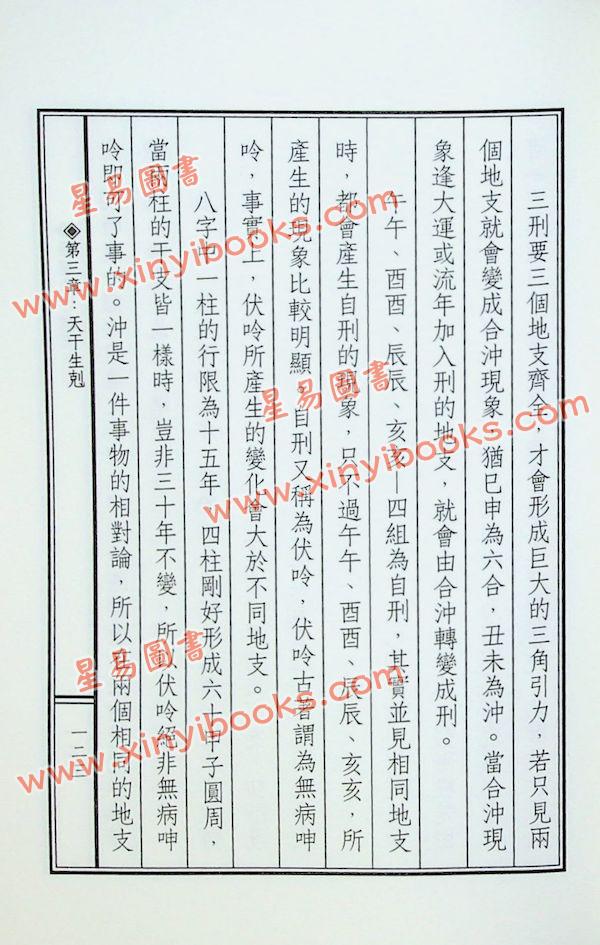 三刑要三個地支齊全，才會形成巨大的三角引力，若只見兩
個地支就會變成合沖現象，猶巳申為六合，丑未為沖。當合沖現
象逢大運或流年加入刑的地支，就會由合沖轉變成刑。
午午、酉酉、辰辰、亥亥—四組為自刑，其實並見相同地支
時，都會產生自刑的現象，只不過午午、酉酉、辰辰、亥亥，所
產生的現象比較明顯。自刑又稱為伏呤，伏呤古著謂為無病呻
呤，事實上，伏呤所產生的變化會大於不同地支。
八字中一柱的行限為十五年，四柱剛好形成六十甲子圓周，
當兩柱的干支皆一樣時，豈非三十年不變，所以伏呤絕非無病呻
呤即可了事的。沖是一件事物的相對論，所以在兩個相同的地支
◈第三章：天干生剋
一二
星易圖書
www.xinyibooks.com
星易圖書
www.xinyibooks.com
星易圖書
www.xinyibooks.com